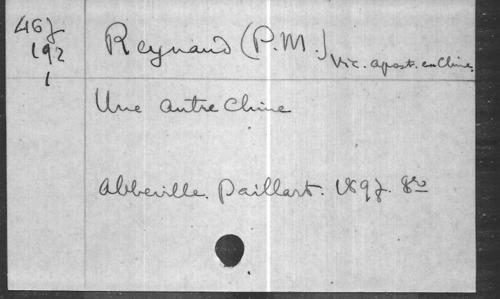 467
192
1
Reynaud (P.M.) Vic. apost. en Chine.
Une autre Chine
Abbeville. Paillart. 1897. 8vo